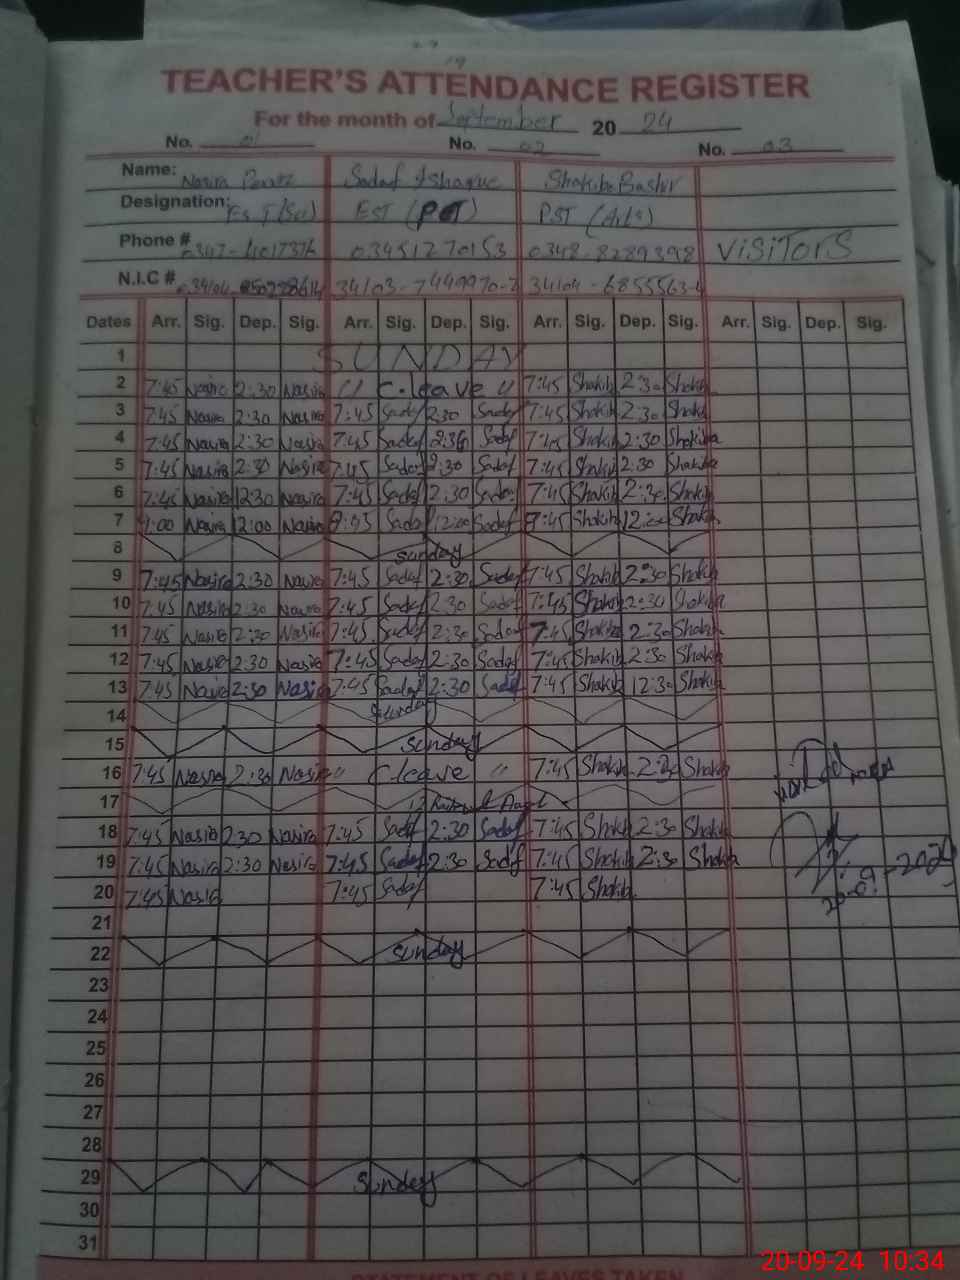 TEACHER'S ATTENDANCE REGISTER
For the month of September 20 24
No. 01 No. 02 No. 03
Name: Nasira Sadaf Ishaque Shakiba Bashir
Designation: EST (Sci) EST (PET) PST (Arts)
Phone # 0347-4017376 03451270153 0348-8289398 VISITORS
N.I.C #
Dates Arr. Sig. Dep. Sig. Arr. Sig. Dep. Sig. Arr. Sig. Dep. Sig. Arr. Sig. Dep. Sig.
1 SUNDAY
2 7:45 Nasira 2:30 Nasira " C.leave " 7:45 Shakib 2:30 Shakib
3 7:45 Nasira 2:30 Nasira 7:45 Sadaf 2:30 Sadaf 7:45 Shakib 2:30 Shakib
4 7:45 Nasira 2:30 Nasira 7:45 Sadaf 2:30 Sadaf 7:45 Shakib 2:30 Shakiba
5 7:45 Nasira 2:30 Nasira 7:45 Sadaf 2:30 Sadaf 7:45 Shakib 2:30 Shakiba
6 7:45 Nasira 2:30 Nasira 7:45 Sadaf 2:30 Sadaf 7:45 Shakib 2:30 Shakib
7 Nasira 12:00 Nasira Sadaf 12:00 Sadaf Shakib 12:00 Shakib
8 sunday
9 7:45 Nasira 2:30 Nasira 7:45 Sadaf 2:30 Sadaf 7:45 Shakib 2:30 Shakib
10 7:45 Nasira 2:30 Nasira 7:45 Sadaf 2:30 Sadaf 7:45 Shakib 2:30 Shakiba
11 7:45 Nasira 2:30 Nasira 7:45 Sadaf 2:30 Sadaf 7:45 Shakiba 2:30 Shakib
12 7:45 Nasira 2:30 Nasira 7:45 Sadaf 2:30 Sadaf 7:45 Shakib 2:30 Shakib
13 7:45 Nasira 2:30 Nasira 7:45 Sadaf 2:30 Sadaf 7:45 Shakib 12:30 Shakib
14
15 sunday
16 7:45 Nasira 2:30 Nasira " C leave " 7:45 Shakib 2:30 Shakib
17 12
18 7:45 Nasira 2:30 Nasira 7:45 Sadaf 2:30 Sadaf 7:45 Shakib 2:30 Shakib
19 7:45 Nasira 2:30 Nasira 7:45 Sadaf 2:30 Sadaf 7:45 Shakib 2:30 Shakiba
20 7:45 Nasira 7:45 Sadaf 7:45 Shakib 20-09-2024
21
22 sunday
23
24
25
26
27
28
29 sunday
30
31
STATEMENT OF LEAVES TAKEN
20-09-24 10:34